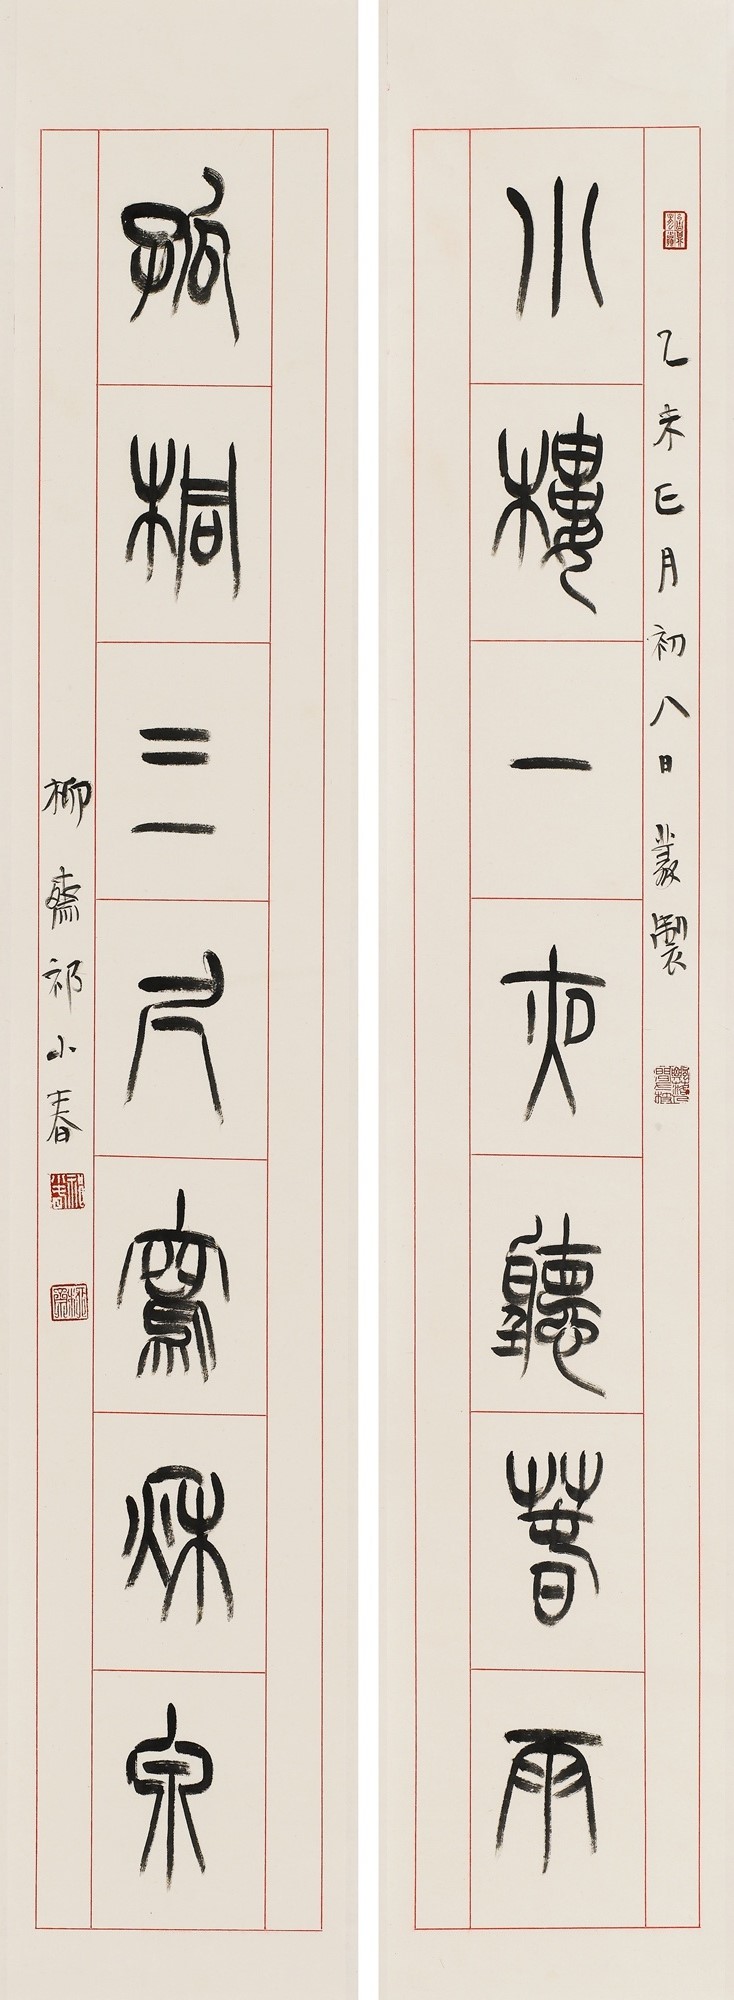 小樓一夜聽春雨
乙未巳月初八日 叢製
孤桐三尺寫秋泉
柳齋祁小春